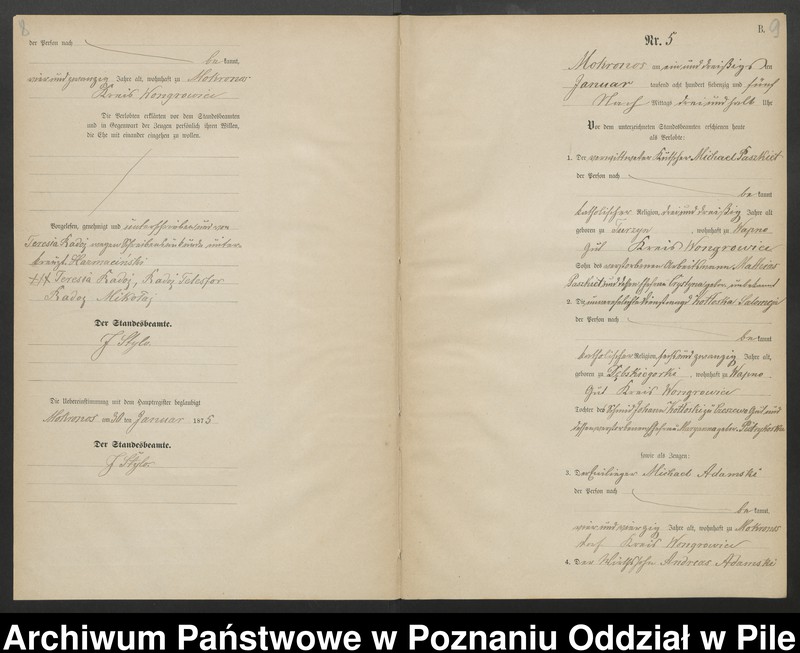 8
der Person nach
be kannt,
vier und zwanzig Jahre alt, wohnhaft zu Mokronos
Kreis Wongrowiec
Die Verlobten erklärten vor dem Standesbeamten
und in Gegenwart der Zeugen persönlich ihren Willen,
die Ehe mit einander eingehen zu wollen.
Vorgelesen, genehmigt und unterschrieben und von
Teresia Radoj wegen Schreibensunkunde unter
kreuzt. Harmaciński
+++ Teresia Radoj, Radoj Telesfor
Radoj Mikołaj
Der Standesbeamte.
J. Stylo
Die Uebereinstimmung mit dem Hauptregister beglaubigt
Mokronos am 30 ten Januar 1875.
Der Standesbeamte.
J. Stylo
B. 9
Nr. 5
Mokronos am ein und dreißigsten
Januar tausend acht hundert siebenzig und fünf
Nach Mittags drei und halb Uhr
Vor dem unterzeichneten Standesbeamten erschienen heute
als Verlobte:
1. Der verwittweter Kutscher Michael Paszkiet
der Person nach
be kannt
katholischer Religion, drei und dreißig Jahre alt
geboren zu Turzyn, wohnhaft zu Wapno
Gut Kreis Wongrowiec
Sohn des verstorbenen Arbeitsmann Mathias
Paszkiet und dessen Ehefrau unbekannt
2. Die unverehelichte Dienstmagd Kotloska Salomeja
der Person nach
be kannt
katholischer Religion, sechs und zwanzig Jahre alt,
geboren zu wohnhaft zu Wapno
Gut Kreis Wongrowiec
Tochter des Schmid Johann Kotloski zu Gut und
dessen verstorbenen Ehefrau
sowie als Zeugen:
3. Der Einlieger Michael Adamski
der Person nach
be kannt,
vier und vierzig Jahre alt, wohnhaft zu Mokronos
dorf Kreis Wongrowiec
4. Der Wirthssohn Andreas Adamski
Archiwum Państwowe w Poznaniu Oddział w Pile